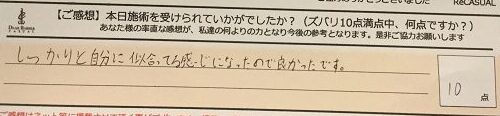 ReCASUAL
【ご感想】本日施術を受けられていかがでしたか？（ズバリ10点満点中、何点ですか？）
あなた様の率直な感想が、私達の何よりの力となり今後の参考となります。是非ご協力お願いします
しっかりと自分に似合ってる感じになったので良かったです。
10 点